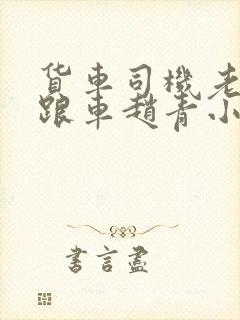 货車司機老
跟車趙青小
書言盡